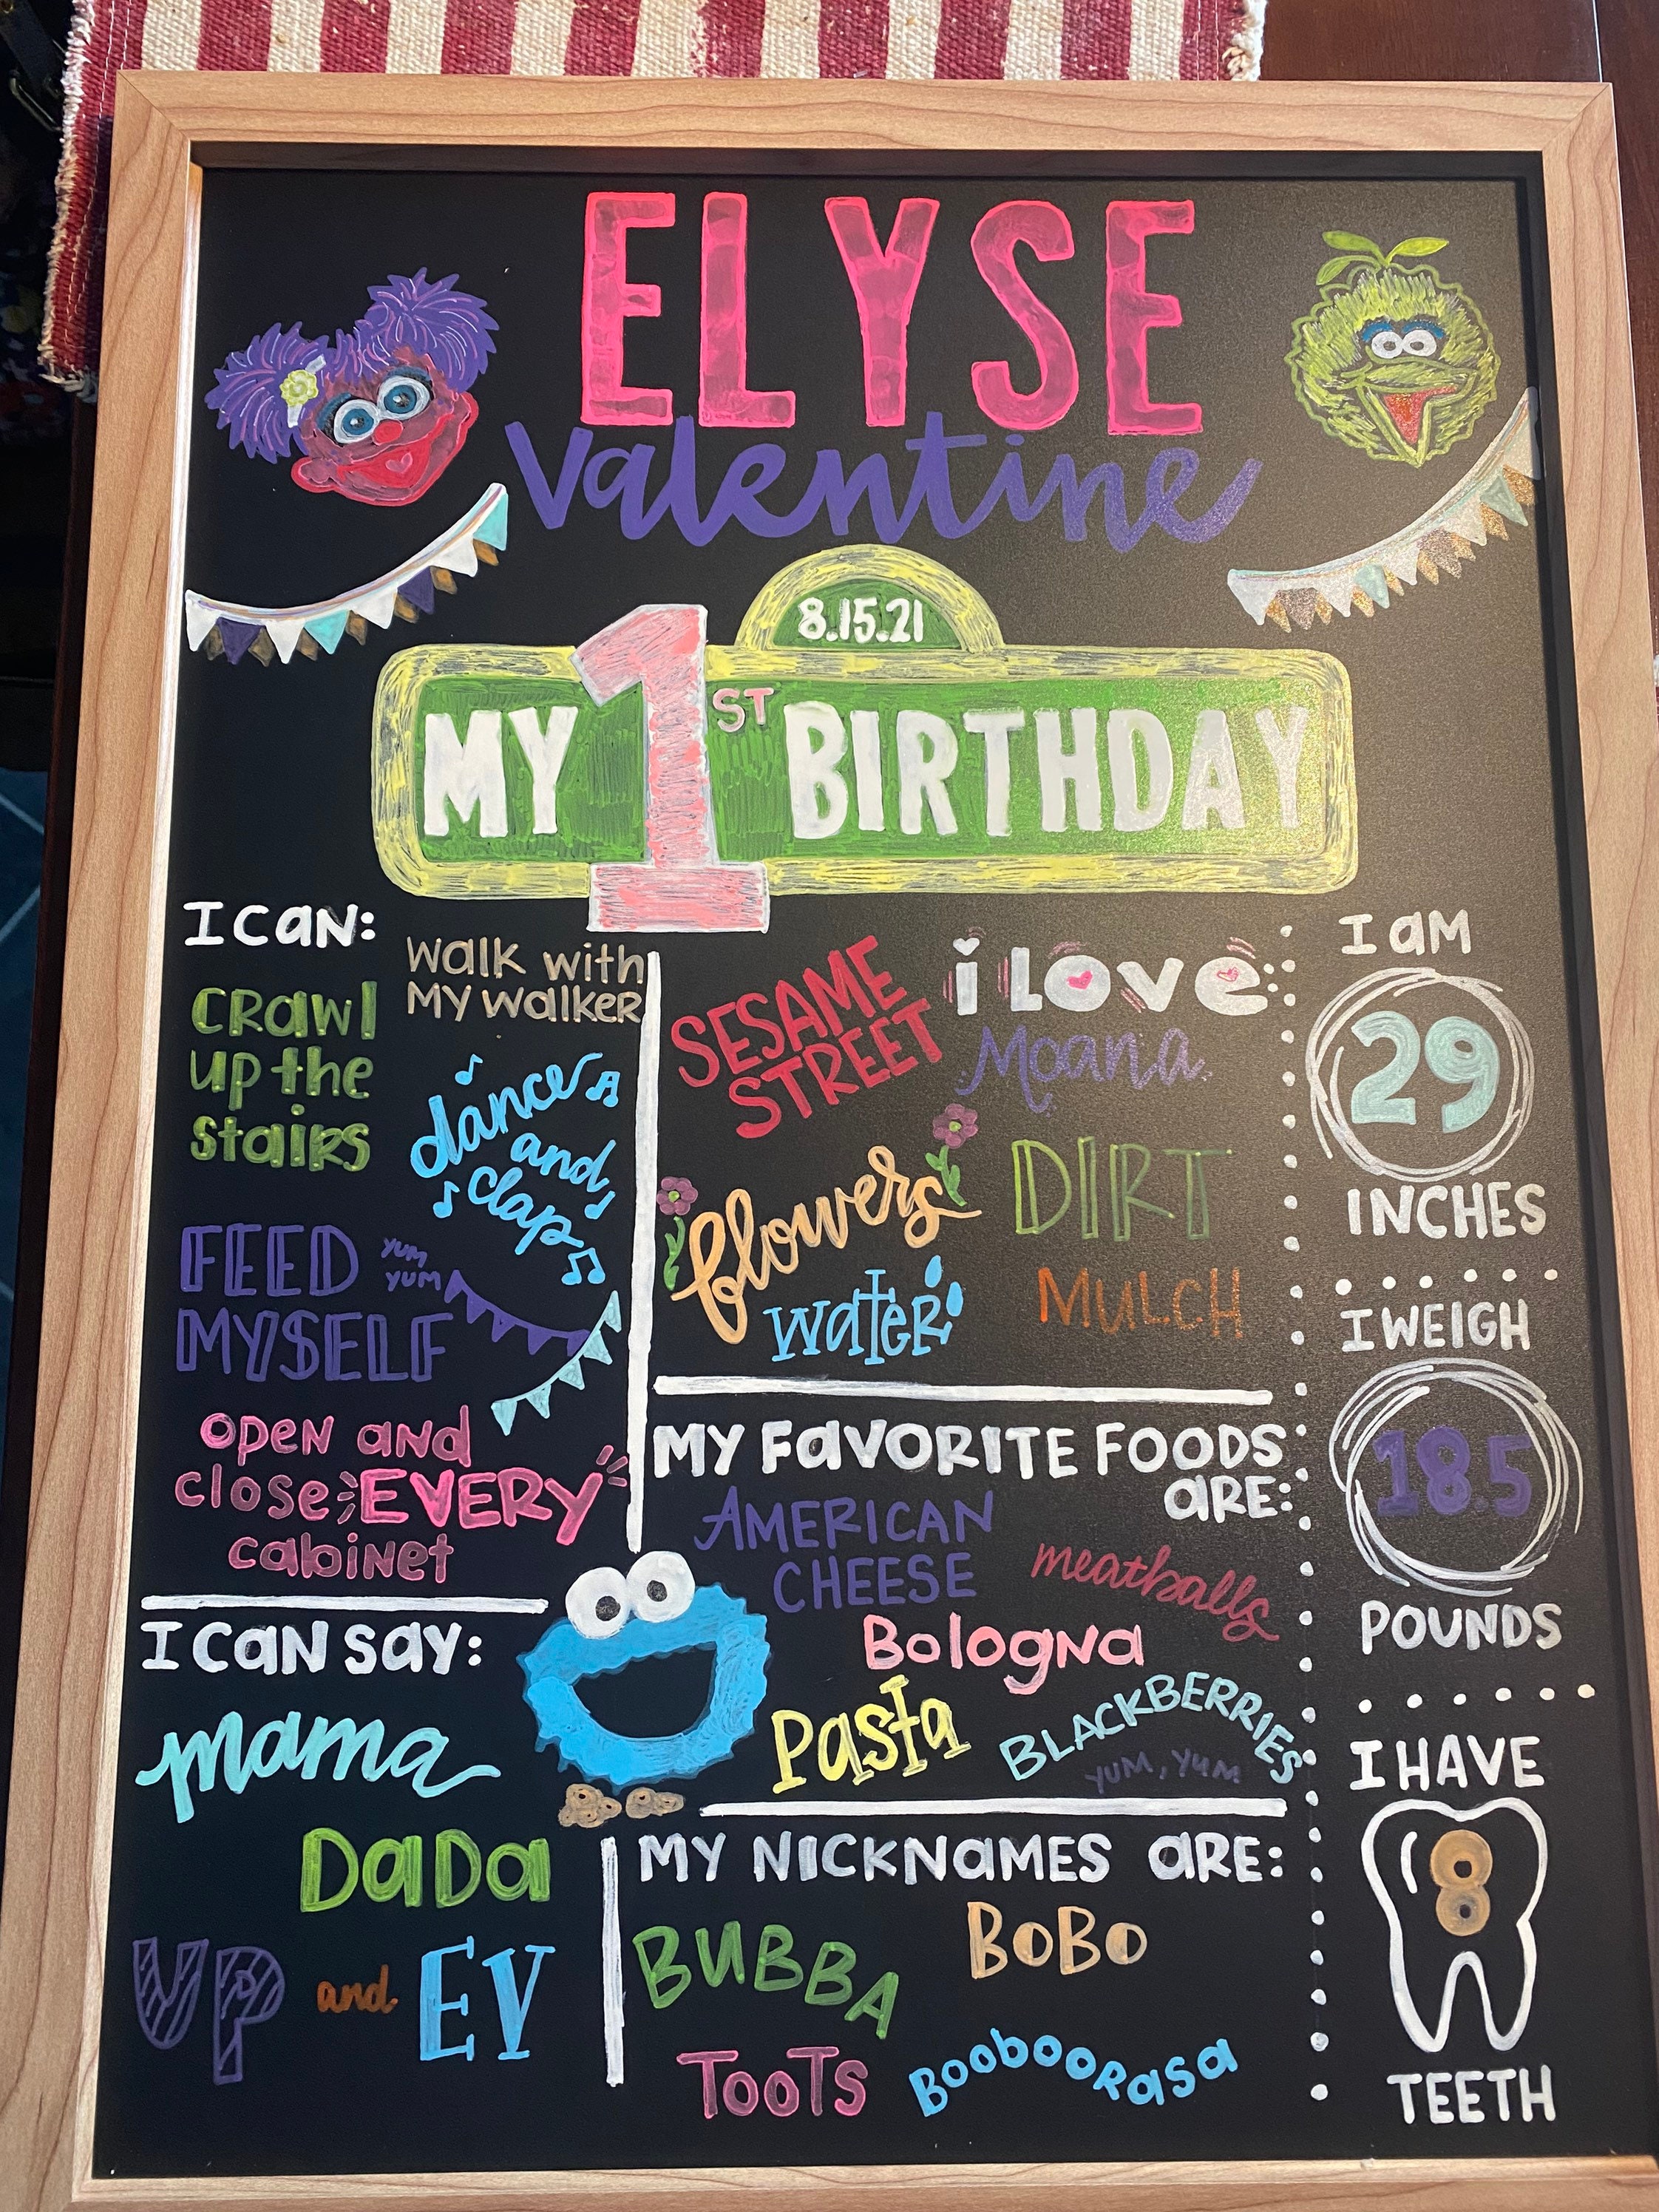 ELYSE
Valentine
8.15.21
MY 1ST BIRTHDAY
I CAN:
WALK with
MY WALKER
CRAWL
UP the
StaiRS
dance
and
clap
FEED
MYSELF
YUM
YUM
OPEN AND
close EVERY
CABINET
I CAN SAY:
mama
DaDa
UP and EV
i LOVE:
SESAME
STREET
Moana
flowers
DIRT
WATER
MULCH
MY FAVORITE FOODS
ARE:
AMERICAN
CHEESE
meatballs
Bologna
Pasta
BLACKBERRIES
YUM, YUM
MY NICKNAMES ARE:
BUBBA
BoBo
TooTs
BoobooRasa
I AM
29
INCHES
I WEIGH
18.5
POUNDS
I HAVE
8
TEETH